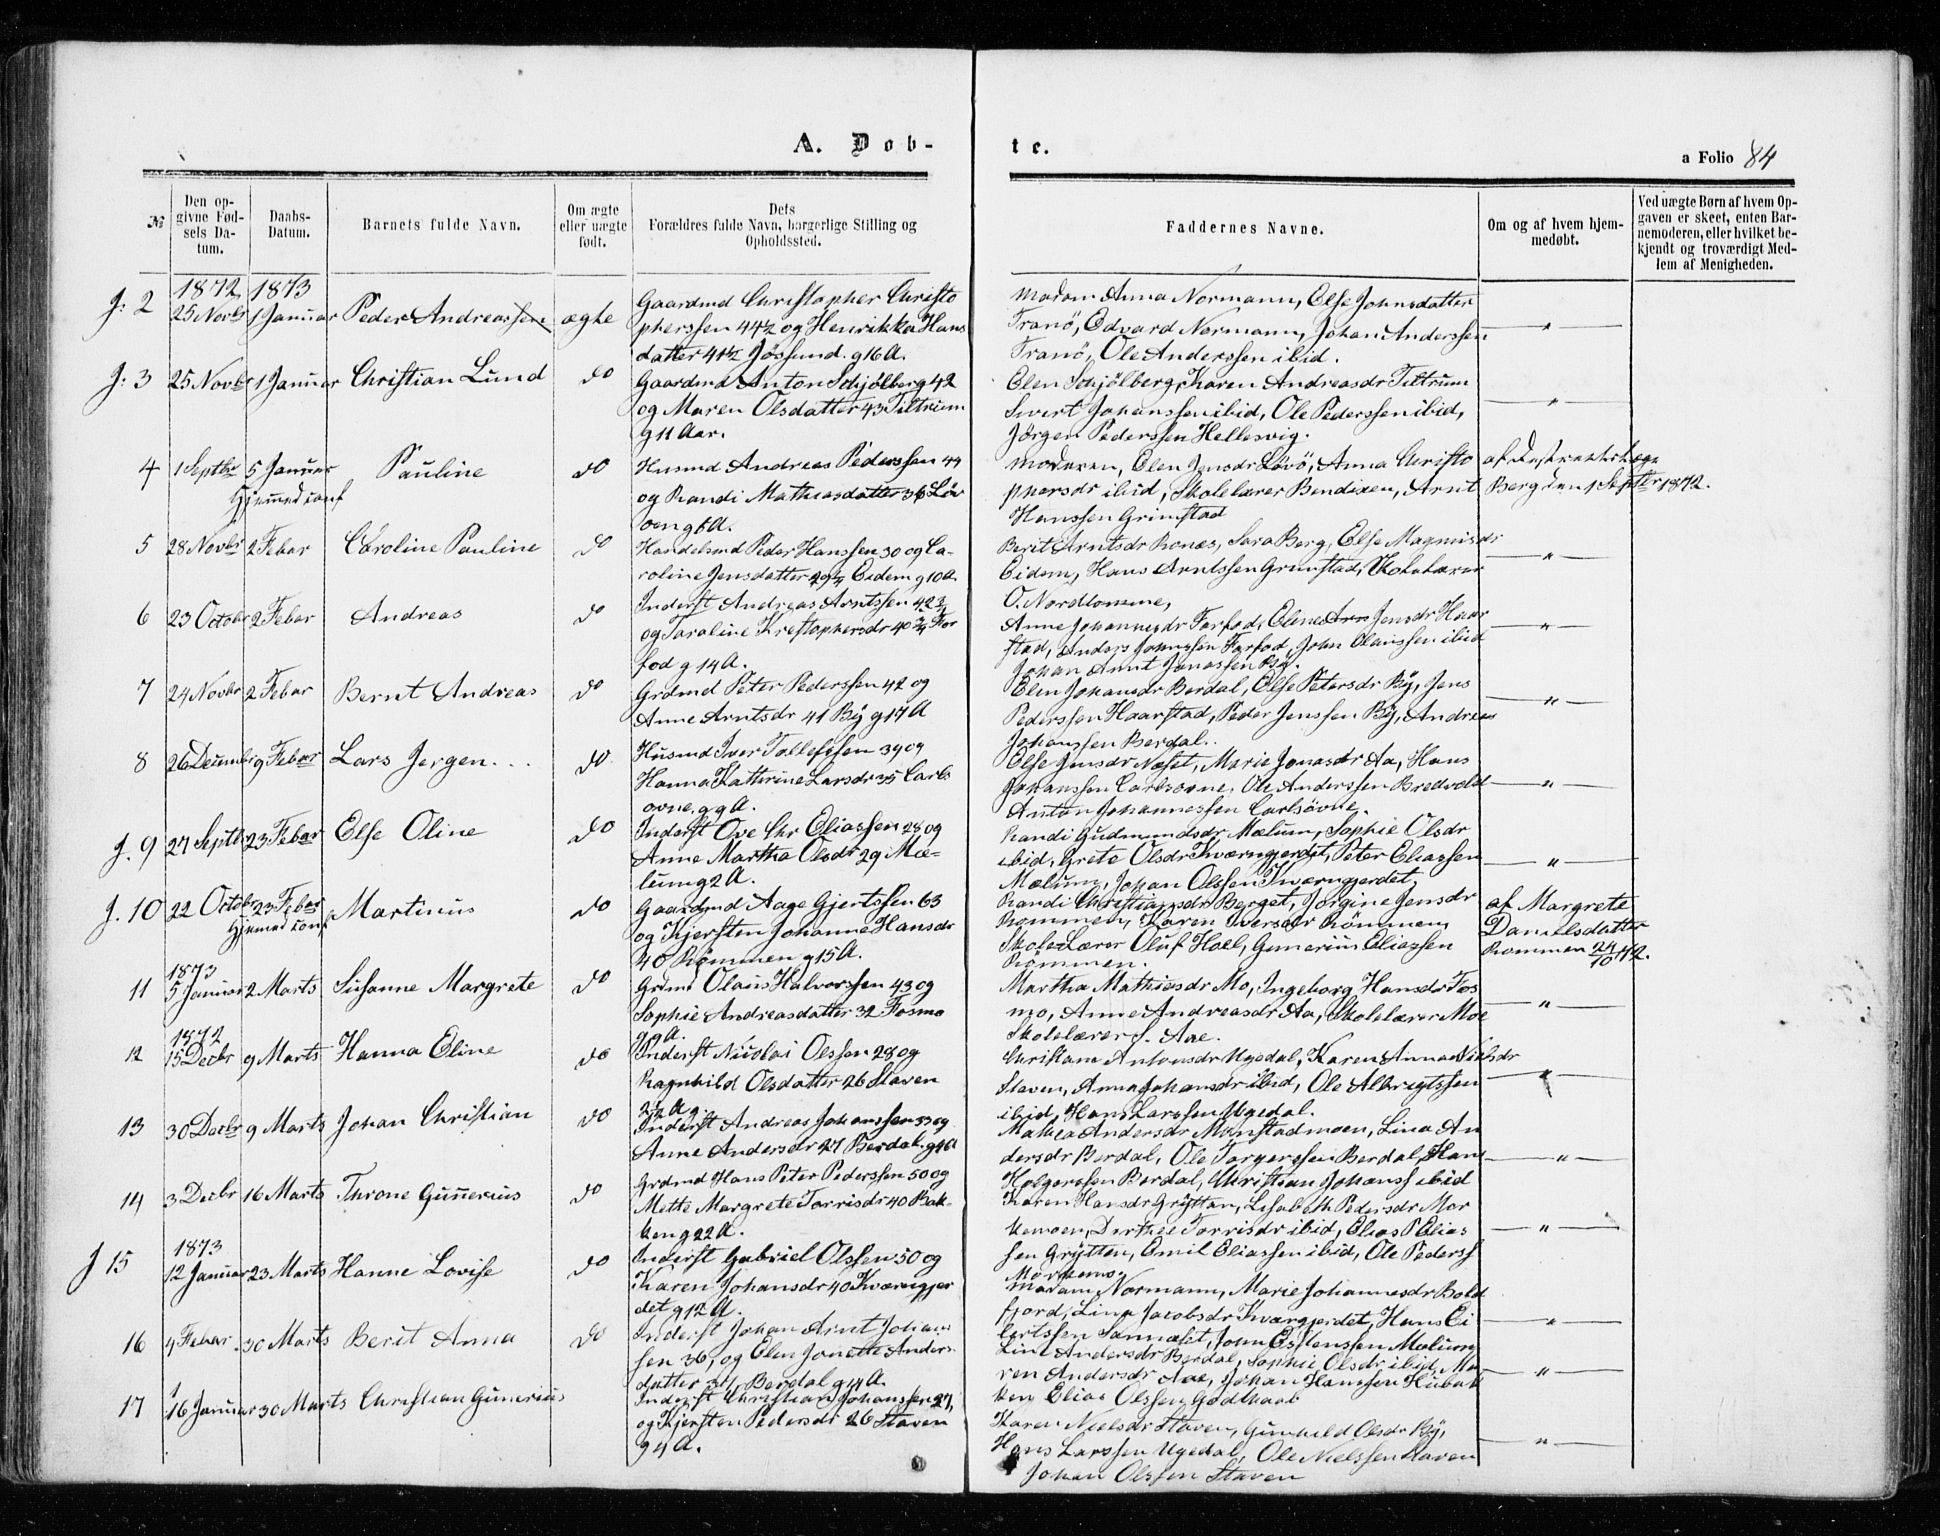 A. Døb-
te.
a Folio 84
№
Den opgivne Fødsels Datum.
Daabs-Datum.
Barnets fulde Navn.
Om ægte eller uægte født.
Dets Forældres fulde Navn, borgerlige Stilling og Opholdssted.
Faddernes Navne.
Om og af hvem hjemmedøbt.
Ved uægte Børn af hvem Opgaven er skeet, enten Barnemoderen, eller hvilket bekjendt og troværdigt Medlem af Menigheden.
1872 1873
J: 2 25 Novbr 1 Januar Peder Andreassen ægte
Gaardmd Christopher Christo
pherssen 44½ og Henrikka Hans
datter 41½ Jøssund. g 16 A.
Madam Anna Normann, Else Johnsdatter
Tranö, Edvard Normann, Johan Anderssen
Tranö, Ole Anderssen ibid.
— " —
J: 3 25 Novbr 1 Januar Christian Lund do
Gaardmd Anton Schjölberg 42
og Maren Olsdatter 43 Tiltrum
g 11 Aar.
Elen Schjölberg, Karen Andreasdr Tiltrum
Sivert Johanssen ibid, Ole Pederssen ibid,
Jörgen Pederssen Hellesvig.
— " —
4 1 Septbr 5 Januar Pauline do
Hjemmed conf
Husmd Andreas Pederssen 44
og Randi Mathiasdatter 36 Löv
öen g 6 A.
Moderen, Elen Jensdr Lövö, Anna Christo
phersdr ibid, Skolelærer Bendixen, Arnt
Hanssen Grimstad
af Destriktslæge
Berg den 1 Septbr 1872.
5 28 Novbr 2 Febar Caroline Pauline do
Handelsmd Peder Hanssen 30 og Ca-
roline Jensdatter 29¼ Eidem g 10 A.
Berit Arntsdr Ronæs, Sara Berg, Else Magnusdr
Eidem, Hans Arntssen Grimstad, Skolelærer
O. Nordtömme,
— " —
6 23 Octobr 2 Febar Andreas do
Inderst Andreas Arntssen 42¾
og Taraline Krestophersdr 40¾ Far
fod g 14 A.
Anne Johannesdr Farfod, Eline Jensdr Haar
stad, Anders Johnssen Farfod, John Olaussen ibid
Johan Arnt Jonassen By.
— " —
7 24 Novbr 2 Febar Bernt Andreas do
Grdmd Peter Pederssen 42 og
Anne Arntsdr 41 By g 17 A
Elen Johansdr Berdal, Else Petersdr By, Jens
Pederssen Haarstad, Peder Jenssen By, Andreas
Johanssen Berdal.
— " —
8 26 Decembr 9 Febar Lars Jergen do
Husmd Iver Tollefssen 39 og
Hanna Kathrine Larsdr 35 Carls
ovne, g 9 A.
Else Jensdr Næset, Marie Jonasdr Aa, Hans
Johanssen Carlsovne, Ole Anderssen Bredvold
Anton Johannessen Carlsövne.
— " —
J. 9 27 Septb 23 Febar Else Oline do
Inderst Ove Chr Eliassen 28 og
Anne Martha Olsdr 29 Mæ-
lum g 2 A.
Randi Gudmundsdr Mælum, Sophie Olsdr
ibid, Grete Olsdr Kværngjerdet, Peter Eliassen
Mælum, Johan Olssen Kværngjerdet,
— " —
J. 10 22 Octobr 23 Febar Martinus do
Hjemmed conf
Gaardmd Aage Gjertssen 63
og Kjersten Johanne Hansdr
40 Römmen g 15 A.
Randi Christiansdr Berget, Jorgine Jensdr
Rommen, Karen Iversdr Römmen,
Skolelærer Oluf Hoel, Gunerius Eliassen
Römmen.
af Margrete
Danielsdatter
Rommen 24/10 72.
1873
11 5 Januar 2 Marts Susanne Margrete do
Grdmd Olaus Halvorssen 43 og
Sophie Andreasdatter 32 Fosmo
g 9 A.
Martha Mathiasdr Mo, Ingeborg Hansdr Fos
mo, Anne Andreasdr Aa, Skolelærer Moe
Skolelærer J. Aae.
— " —
1872
12 15 Decbr 9 Marts Hanna Eline do
Inderst Nicolai Olssen 28 og
Ragnhild Olsdatter 26 Staven
2½ A g.
Christiane Antonsdr Ugedal, Karen Anna Nielsdr
Staven, Anna Johansdr ibid, Ole Albrigtssen
ibid, Hans Larssen Ugedal.
— " —
13 30 Decbr 9 Marts Johan Christian do
Inderst Andreas Johanssen 33 og
Anne Andersdr 27 Berdal. g 4 A
Mathea Andersdr Monstadmoen, Lina An
dersdr Berdal, Ole Torgerssen Berdal, Hans
Holgerssen Berdal, Christian Johanss ibid
— " —
14 3 Decbr 16 Marts Throne Gunnerius do
Grdmd Hans Peter Pederssen 50 og
Mette Margrete Torrisdr 40 Bak-
ken g 22 A.
Karen Hansdr Gryttan, Lisabeth Pedersdr Mor
kemoen, Dorthie Torrisdr ibid, Elias P Elias
sen Gryttin, Emil Eliassen ibid, Ole Pederss
— " —
1873
J 15 12 Januar 23 Marts Hanne Lovise do
Inderst Gabriel Olssen 50 og
Karen Johansdr 40 Kværngjer
det g 12 A.
Madam Normann, Marie Johannesdr Bold
fjord, Lina Jacobsdr Kværgjerdet, Hans Ei
lertssen Sannæset, John Estenssen Mælum
— " —
16 4 Febar 30 Marts Berit Anna do
Inderst Johan Arnt Johans
sen 36, og Elen Jonette Anders-
datter Berdal g 14 A.
Line Andersdr Berdal, Sophie Olsdr ibid, Ma
ren Andersdr Aae, Johan Hanssen Hubak
ken Elias Olssen Godthaab
— " —
17 16 Januar 30 Marts Christian Gunerius
Inderst Christian Johanssen 27,
og Kjersten Pedersdr 26 Staven
g 4 A.
Karen Nielsdr Staven, Gunhild Olsdr By,
Hans Larssen Ugedal, Ole Nielssen Staven
Johan Olssen Staven
— " —